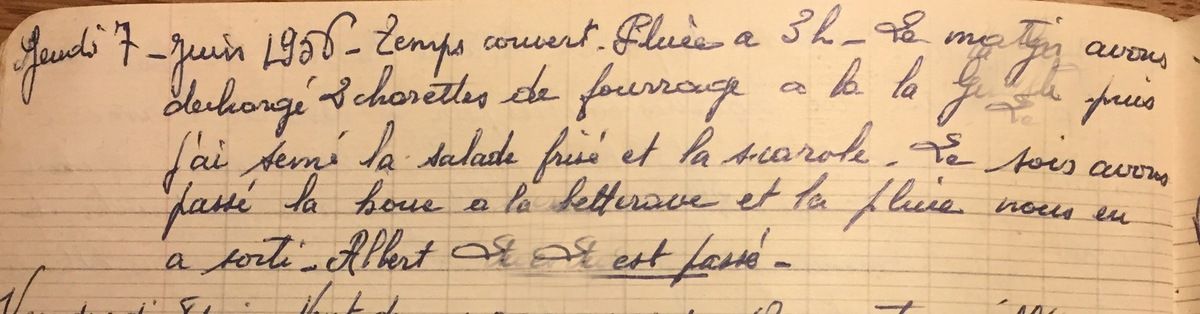 Jeudi 7 - Juin 1956 - Temps couvert. Pluie a 3h - Le matin avons
dechargé 2 charettes de fourrage a la la puis
j'ai semé la salade frisé et la scarole. Le soir avons
passé la houe a la betterave et la pluie nous en
a sorti - Albert est passé -
Vendredi 8 Juin